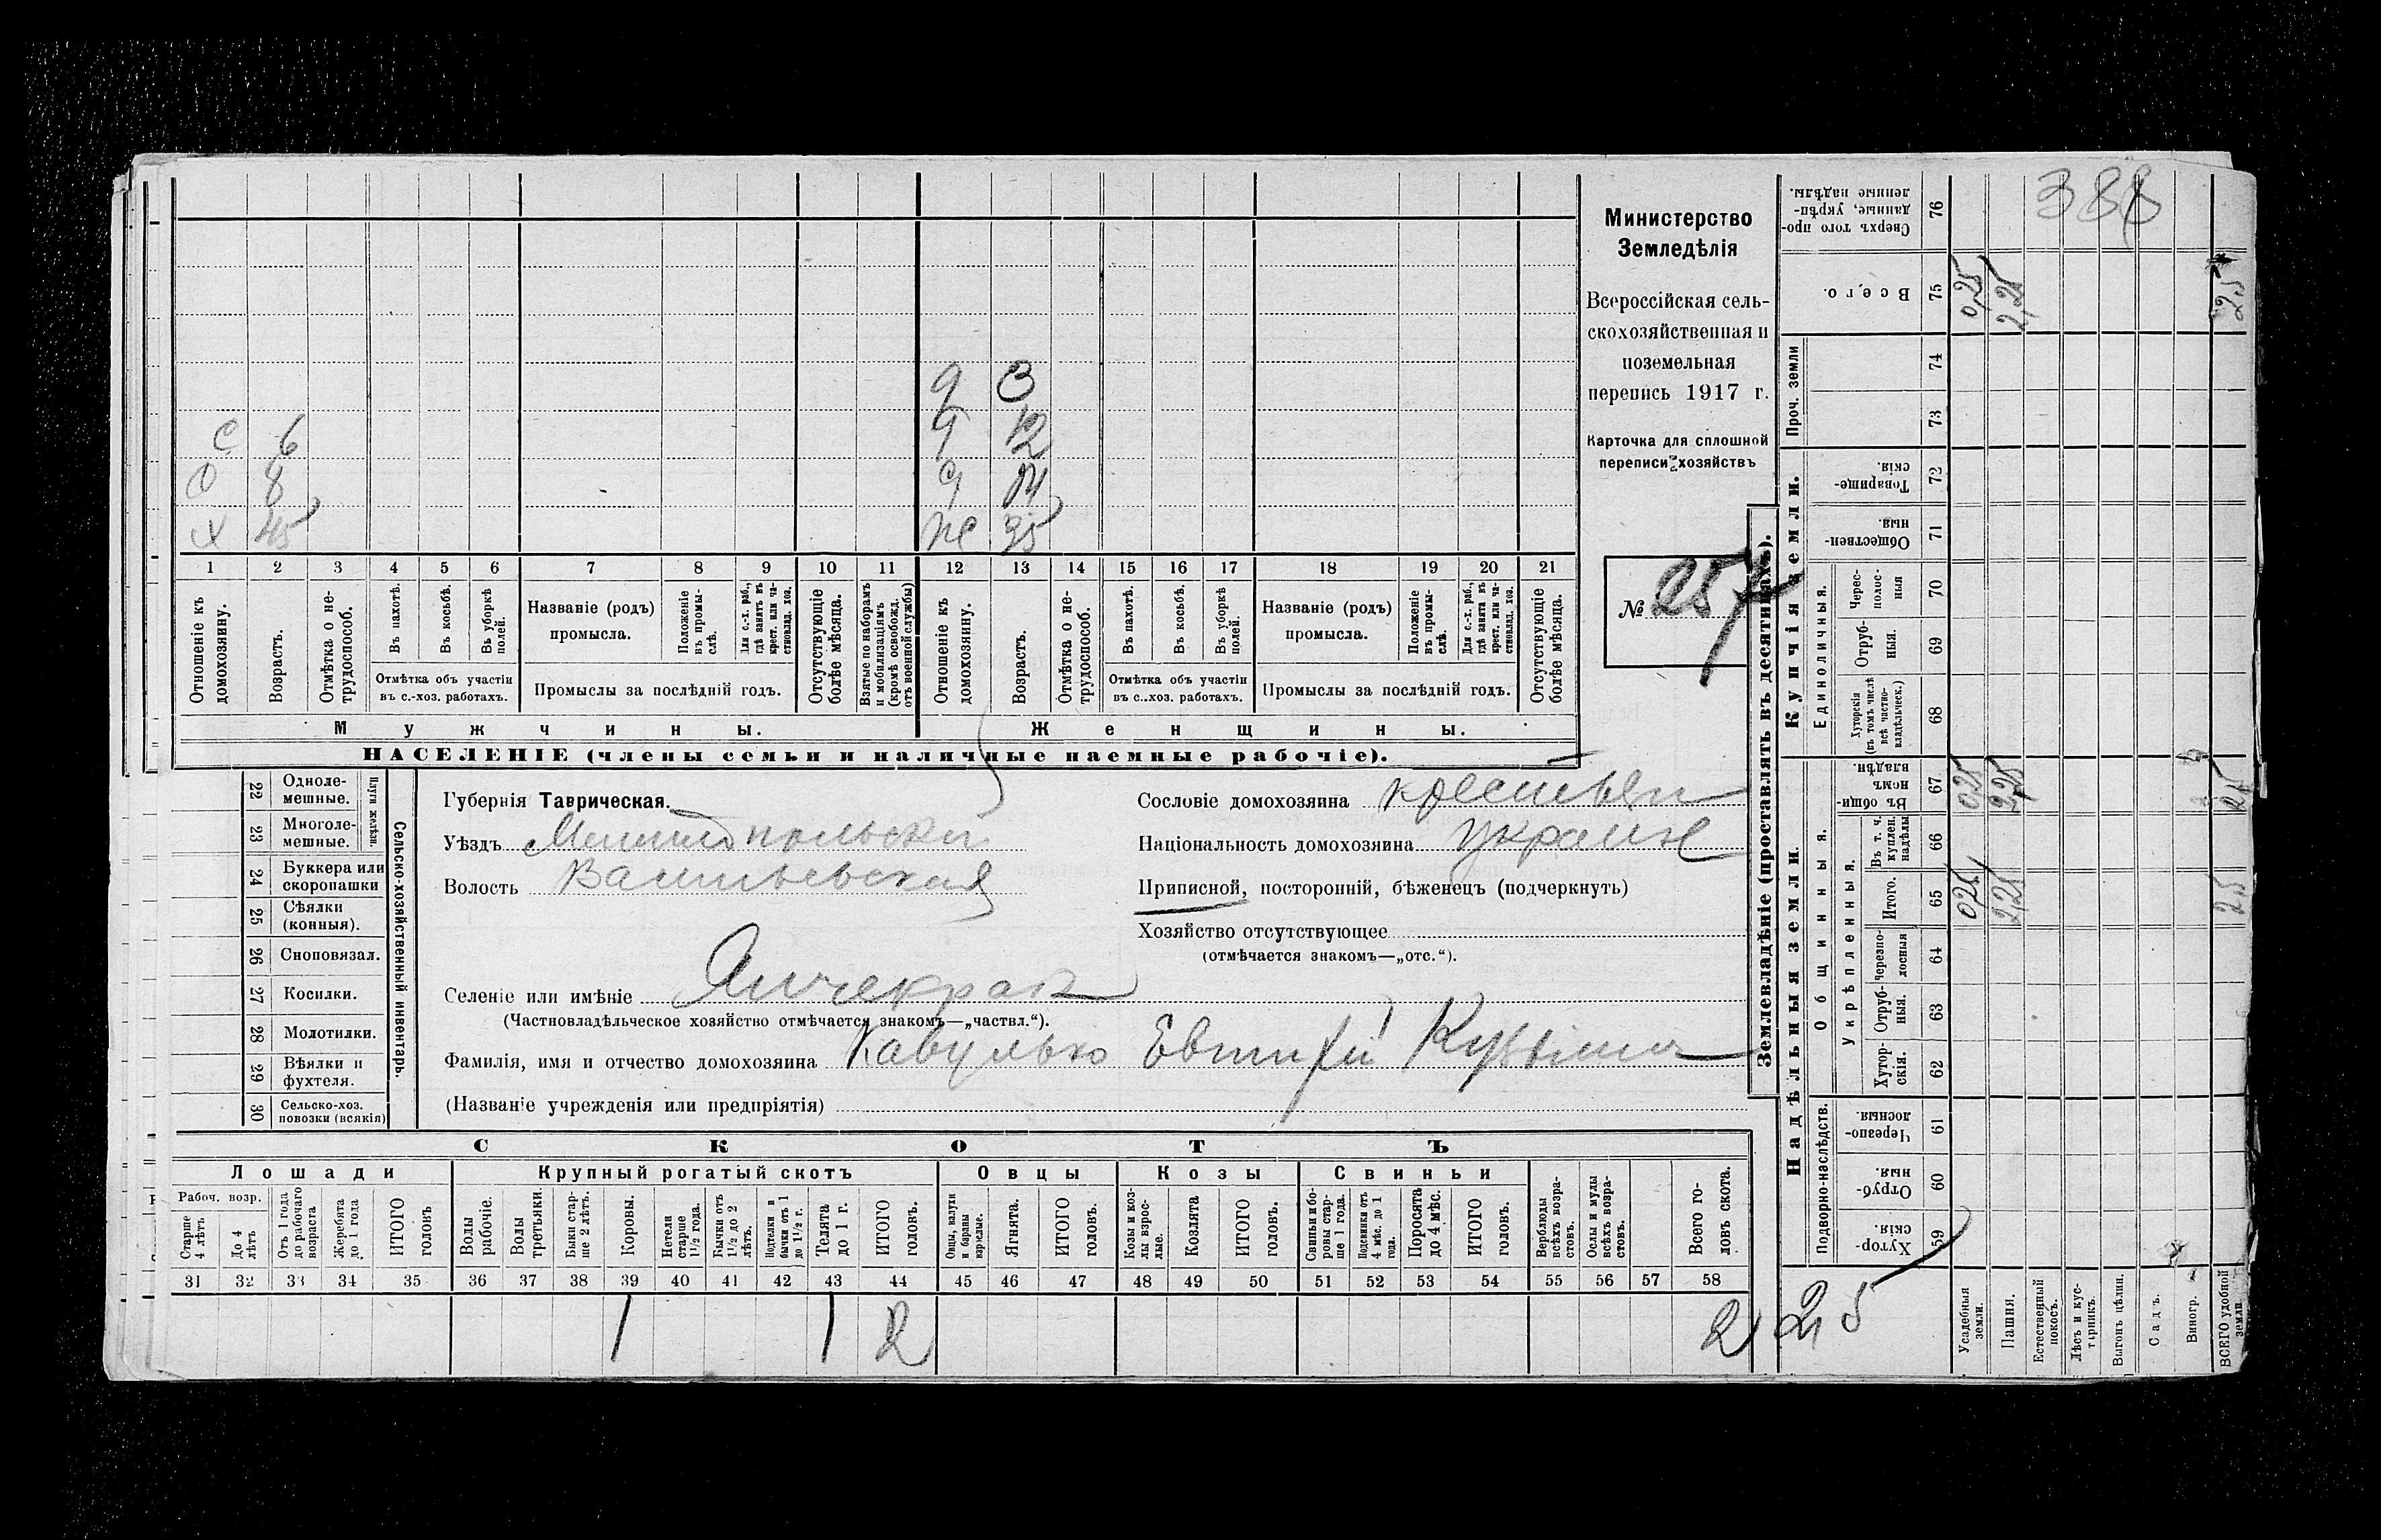 Министерство
Земледѣлія
Всероссійская сель-
скохозяйственная и
поземельная
перепись 1917 г.
Карточка для сплошной
переписи хозяйствъ
№ 257
388
д 3
с 6 д 12
с 8 д 14
х 45 же 35
1 2 3 4 5 6 7 8 9 10 11 12 13 14 15 16 17 18 19 20 21
Отношеніе къ домохозяину.
Возрастъ.
Отмѣтка о не-трудоспособ.
Въ пахотѣ.
Въ косьбѣ.
Въ уборкѣ полей.
Отмѣтка объ участіи въ с.-хоз. работахъ.
Названіе (родъ) промысла.
Положеніе въ промы-слѣ.
Для с.-х. раб., гдѣ занятъ въ крест. или ча-стновлад. хоз.
Промыслы за послѣдній годъ.
Отсутствующіе болѣе мѣсяца.
Взятые по наборамъ и мобилизаціямъ (кромѣ освобожд. отъ военной службы)
Отношеніе къ домохозяину.
Возрастъ.
Отмѣтка о не-трудоспособ.
Въ пахотѣ.
Въ косьбѣ.
Въ уборкѣ полей.
Отмѣтка объ участіи въ с..хоз. работахъ.
Названіе (родъ) промысла.
Положеніе въ промы-слѣ.
Для с.-х. раб., гдѣ занята въ крест. или ча-стновлад. хоз.
Промыслы за послѣдній годъ.
Отсутствующіе болѣе мѣсяца.
Мужчины. Женщины.
НАСЕЛЕНІЕ (члены семьи и наличные наемные рабочіе).
Сельско-хозяйственный инвентарь.
Плуги желѣзн.
22 Одноле-мешные.
23 Многоле-мешные.
24 Буккера или скоропашки
25 Сѣялки (конныя).
26 Сноповязал.
27 Косилки.
28 Молотилки.
29 Вѣялки и фухтеля.
30 Сельско-хоз. повозки (всякія)
Губернія Таврическая.
Уѣздъ Мелитопольскій
Волость Васильевская
Сословіе домохозяина крестьян
Національность домохозяина украине
Приписной, посторонній, бѣженецъ (подчеркнуть)
Хозяйство отсутствующее
(отмѣчается знакомъ—„отс.“).
Селеніе или имѣніе Янчекрак
(Частновладѣльческое хозяйство отмѣчается знакомъ—„частвл.“).
Фамилія, имя и отчество домохозяина Кавулько Евтифій Кузьмич
(Названіе учрежденія или предпріятія)
СКОТЪ
Лошади Крупный рогатый скотъ Овцы Козы Свиньи
Рабоч. возр.
Старше 4 лѣтъ
До 4 лѣтъ
Отъ 1 года до рабочаго возраста
Жеребята до 1 года
ИТОГО головъ
Волы рабочіе.
Волы третьяки.
Быки стар-ше 2 лѣтъ.
Коровы.
Нетели старше 1½ года.
Бычки отъ 1½ до 2 лѣтъ.
Подтелки и бычки отъ 1 до 1½ г.
Телята до 1 г.
ИТОГО головъ.
Овцы, валухи и бараны взрослые.
Ягнята.
ИТОГО головъ.
Козы и коз-лы взрос-лые.
Козлята
ИТОГО головъ.
Свиньи и бо-ровы стар-ше 1 года.
Подсвинки отъ 4 мѣс. до 1 года.
Поросята до 4 мѣс.
ИТОГО головъ.
Верблюды всѣхъ возра-стовъ.
Ослы и мулы всѣхъ возра-стовъ.
Всего го-ловъ скота.
31 32 33 34 35 36 37 38 39 40 41 42 43 44 45 46 47 48 49 50 51 52 53 54 55 56 57 58
1 1 2 2
2,5
Землевладѣніе (проставлять въ десятинахъ).
Купчія земли.
Надѣльныя земли
Проч. земли
Единоличныя.
Общинныя.
Укрѣпленныя.
Подворно-наслѣдств.
Сверхъ того про-данные, укрѣп-ленные надѣлы. 76
Всего. 75 0,25 2,25 2,5
74
73
Товарище-скія. 72
Обществен-ныя. 71
Черес-полос-ныя 70
Отруб-ныя. 69
Хуторскія (въ томъ числѣ всѣ частно-владѣльческ.) 68
Въ общин-номъ владѣн. 67 0,25 2,25 2,5
Въ т. ч. куплен. надѣлы 66
Итого. 65 0,25 2,25 2,5
Черезпо-лосныя 64
Отруб-ныя. 63
Хутор-скія. 62
Черезпо-лосныя. 61
Отруб-ныя. 60
Хутор-скія. 59
Усадебныя земли.
Пашня.
Естественный покосъ.
Лѣсъ и кус-тарникъ.
Выгонъ цѣлин.
Садъ.
Виногр.
ВСЕГО удобной земли.